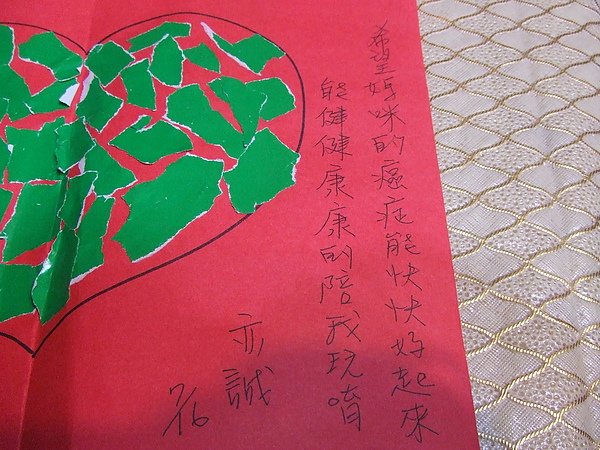 希望媽咪的癌症能快快好起來
能健健康康的陪我玩唷
亦誠
7/16